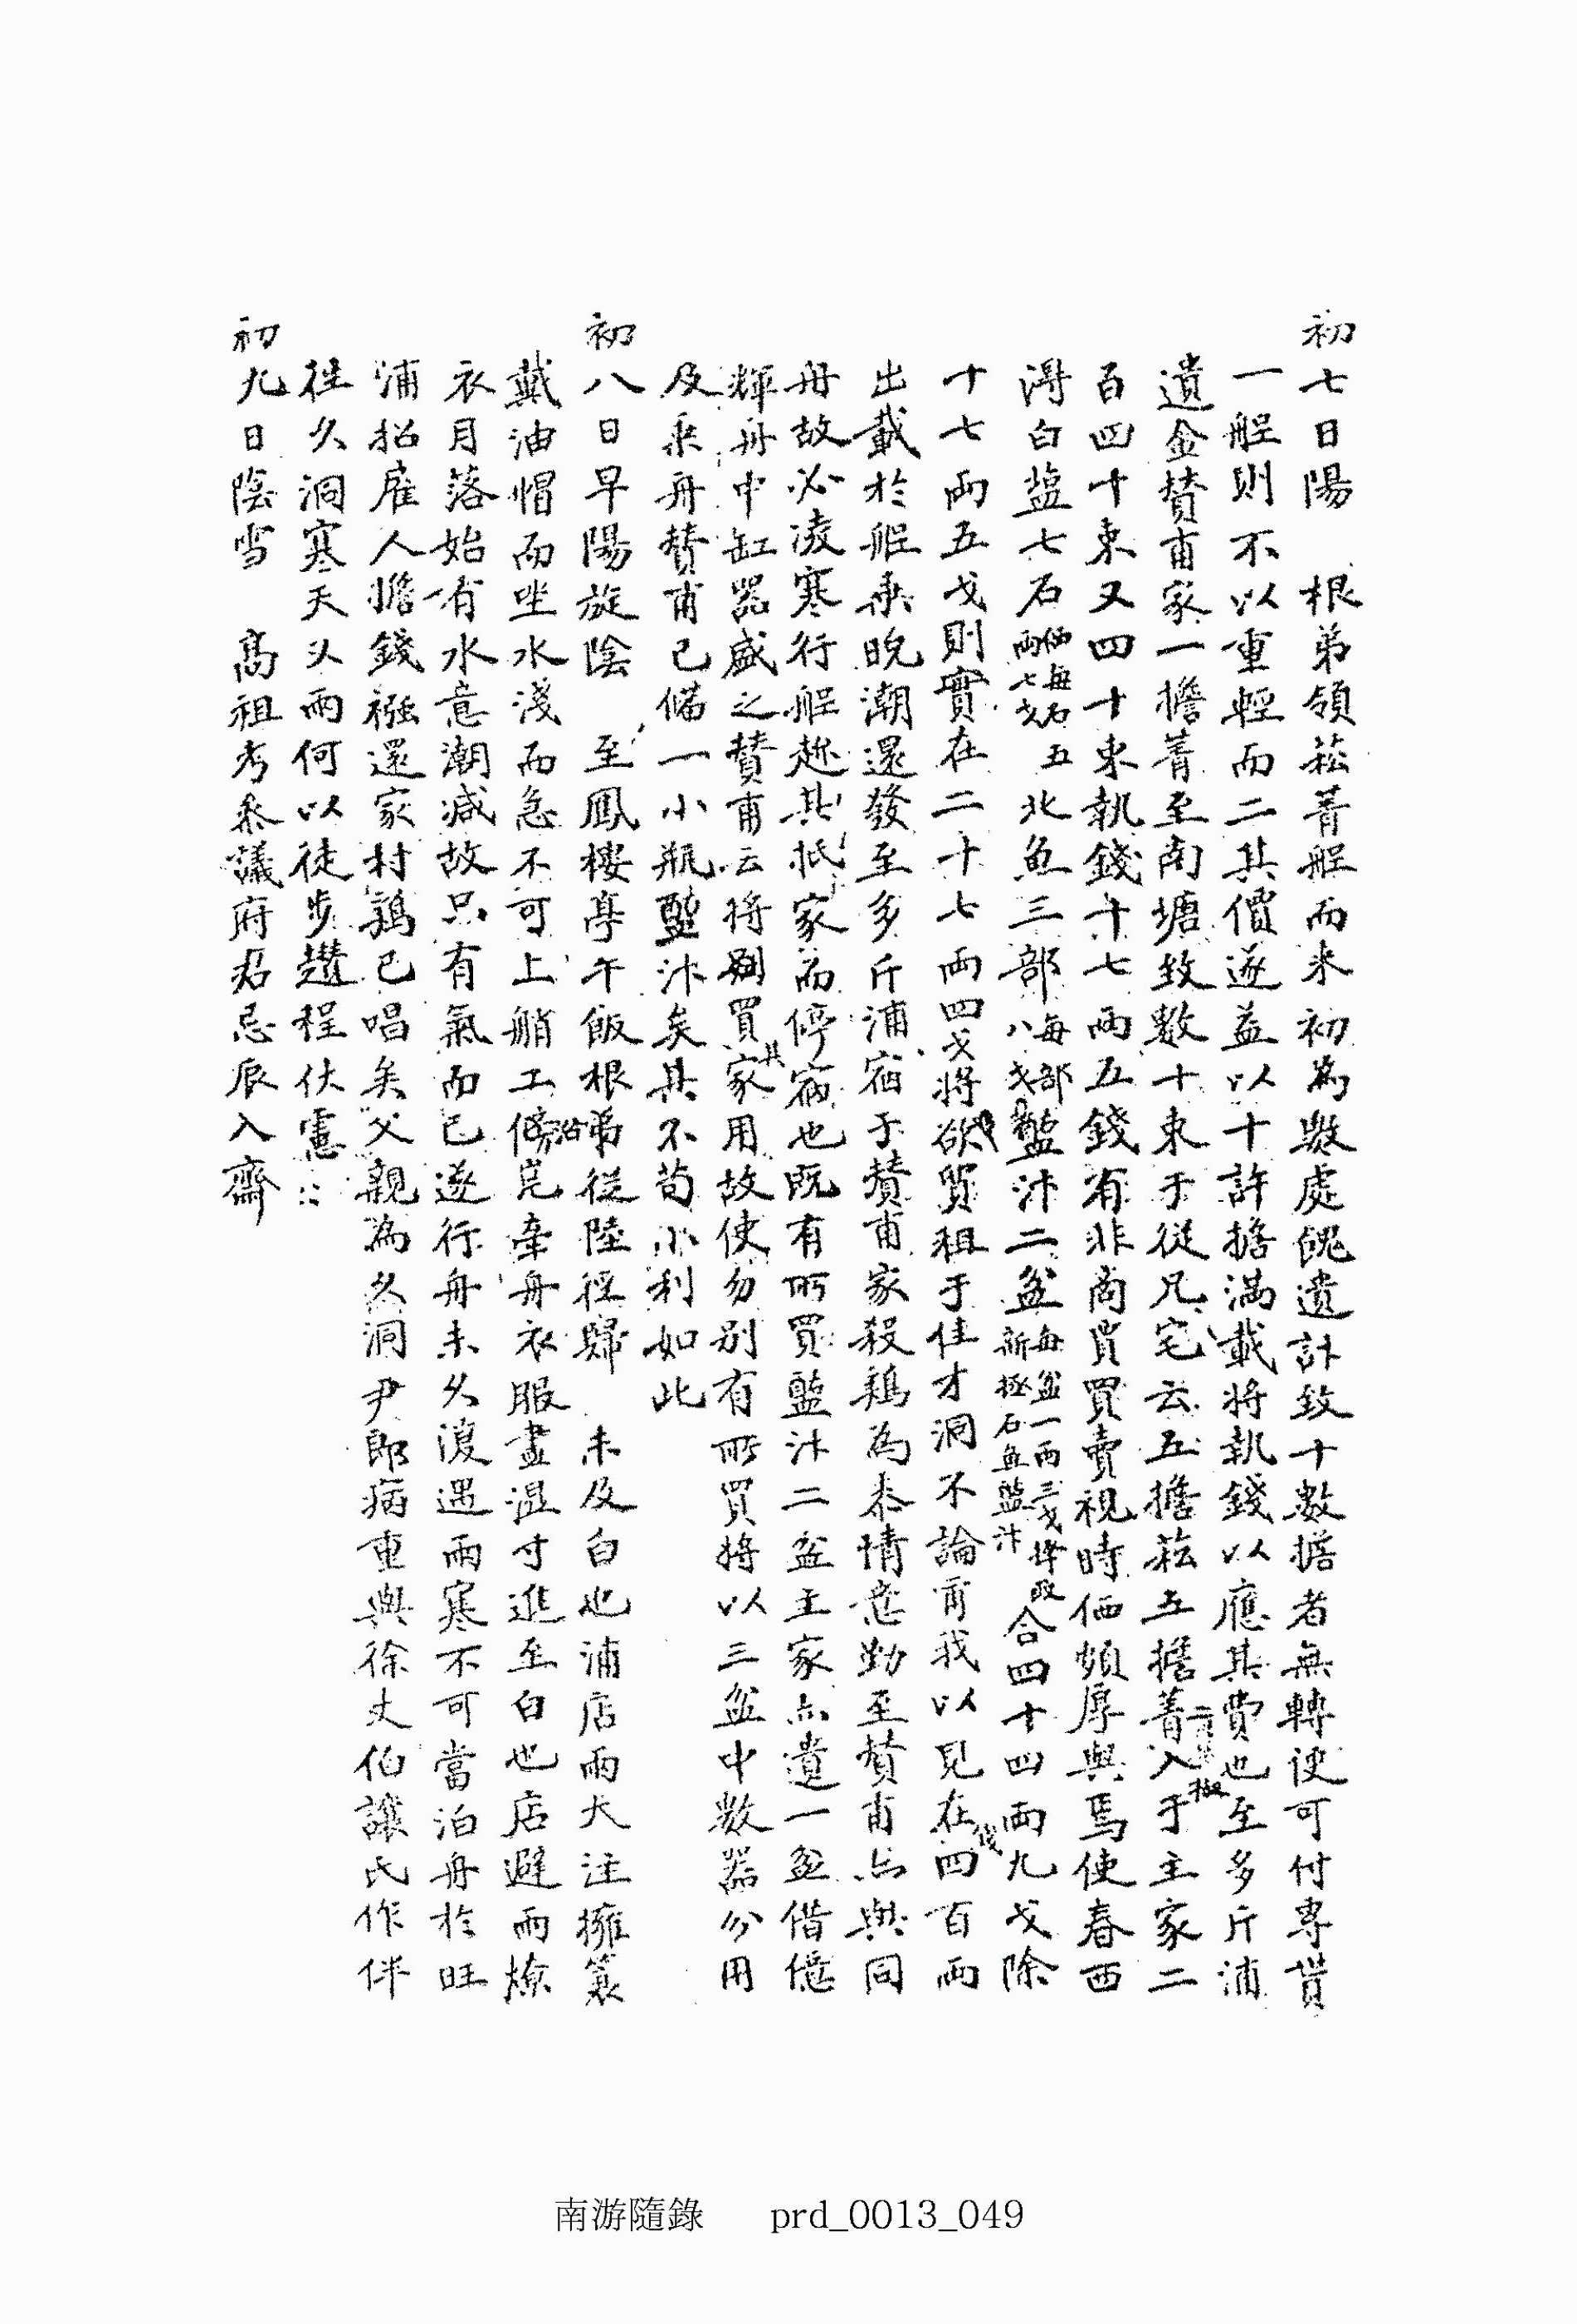 初七日陽 根弟領菘菁舡而来初為數處餽遺計致十數擔者無轉便可付專貰
一舡則不以重輕而二其價遂益以十許擔滿載將執錢以應其費也至多斤浦
遺金賛甫家一擔菁至南塘致數十束于從兄宅云五擔菘五擔菁入于主家二
百四十束又四十束執錢十七兩五錢有非商買買賣視時価頗厚與焉使春西
得白塩七石価每石五兩七戈北魚三部每部八戈藍汁二盆每盆一兩三戈合四十四兩九戈除
十七兩五戈則實在二十七兩四戈將欲貿租于佳才洞不論甫我以見在錢四百兩
出載於舡乘晩潮還發至多斤浦宿于賛甫家殺鷄為黍情意勤至賛甫亦與同
舟故必凌寒行舡趂其抵家而停宿也既有所買藍汁二盆主家亦遺一盆借億
輝舟中缸器盛之賛甫云將別買其家用故使勿別有所買將以三盆中數器分用
及乘舟賛甫已備一小瓶藍汁矣其不苟小利如此
初八日早陽旋陰 至鳳樓亭午飯根弟從陸徑歸 未及白也浦店雨大注擁簑
戴油帽而坐水淺而急不可上艄工傍沿崑牽舟衣服盡湿寸進至白也店避雨燎
衣月落始有水意潮减故只有氣而已遂行舟未久復遇雨寒不可當泊舟於旺
浦招雇人擔錢襁還家村鷄已唱矣父親為久洞尹郎病重與徐丈伯讓氏作伴
徃久洞寒天久雨何以徒步趲程伏慮〻
初九日陰雪 高祖考叅議府君忌辰入齋
南游隨錄 prd_0013_049